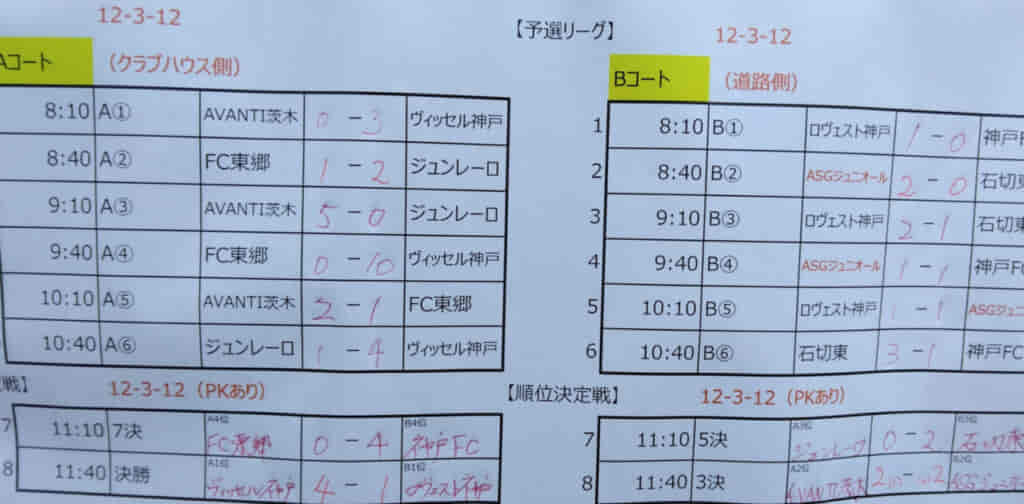 12-3-12
【予選リーグ】
12-3-12
Aコート
(クラブハウス側)
Bコート
(道路側)
8:10 A① AVANTI茨木 0-3 ヴィッセル神戸
8:40 A② FC東郷 1-2 ジュンレーロ
9:10 A③ AVANTI茨木 5-0 ジュンレーロ
9:40 A④ FC東郷 0-10 ヴィッセル神戸
10:10 A⑤ AVANTI茨木 2-1 FC東郷
10:40 A⑥ ジュンレーロ 1-4 ヴィッセル神戸
1 8:10 B① ロヴェスト神戸 1-0 神戸F
2 8:40 B② ASGジュニオール 2-0 石切東
3 9:10 B③ ロヴェスト神戸 2-1 石切東
4 9:40 B④ ASGジュニオール 1-1 神戸FC
5 10:10 B⑤ ロヴェスト神戸 1-1 ASGジュニ
6 10:40 B⑥ 石切東 3-1 神戸FC
戦】
12-3-12(PKあり)
【順位決定戦】
12-3-12(PKあり)
A4位 B4位
7 11:10 7決 FC東郷 0-4 神戸FC
A1位 B1位
8 11:40 決勝 ヴィッセル神戸 4-1 ロヴェスト神戸
A3位 B3位
7 11:10 5決 ジュンレーロ 0-2 石切東
A2位 B2位
8 11:40 3決 AVANTI茨木 ASGジュニオール